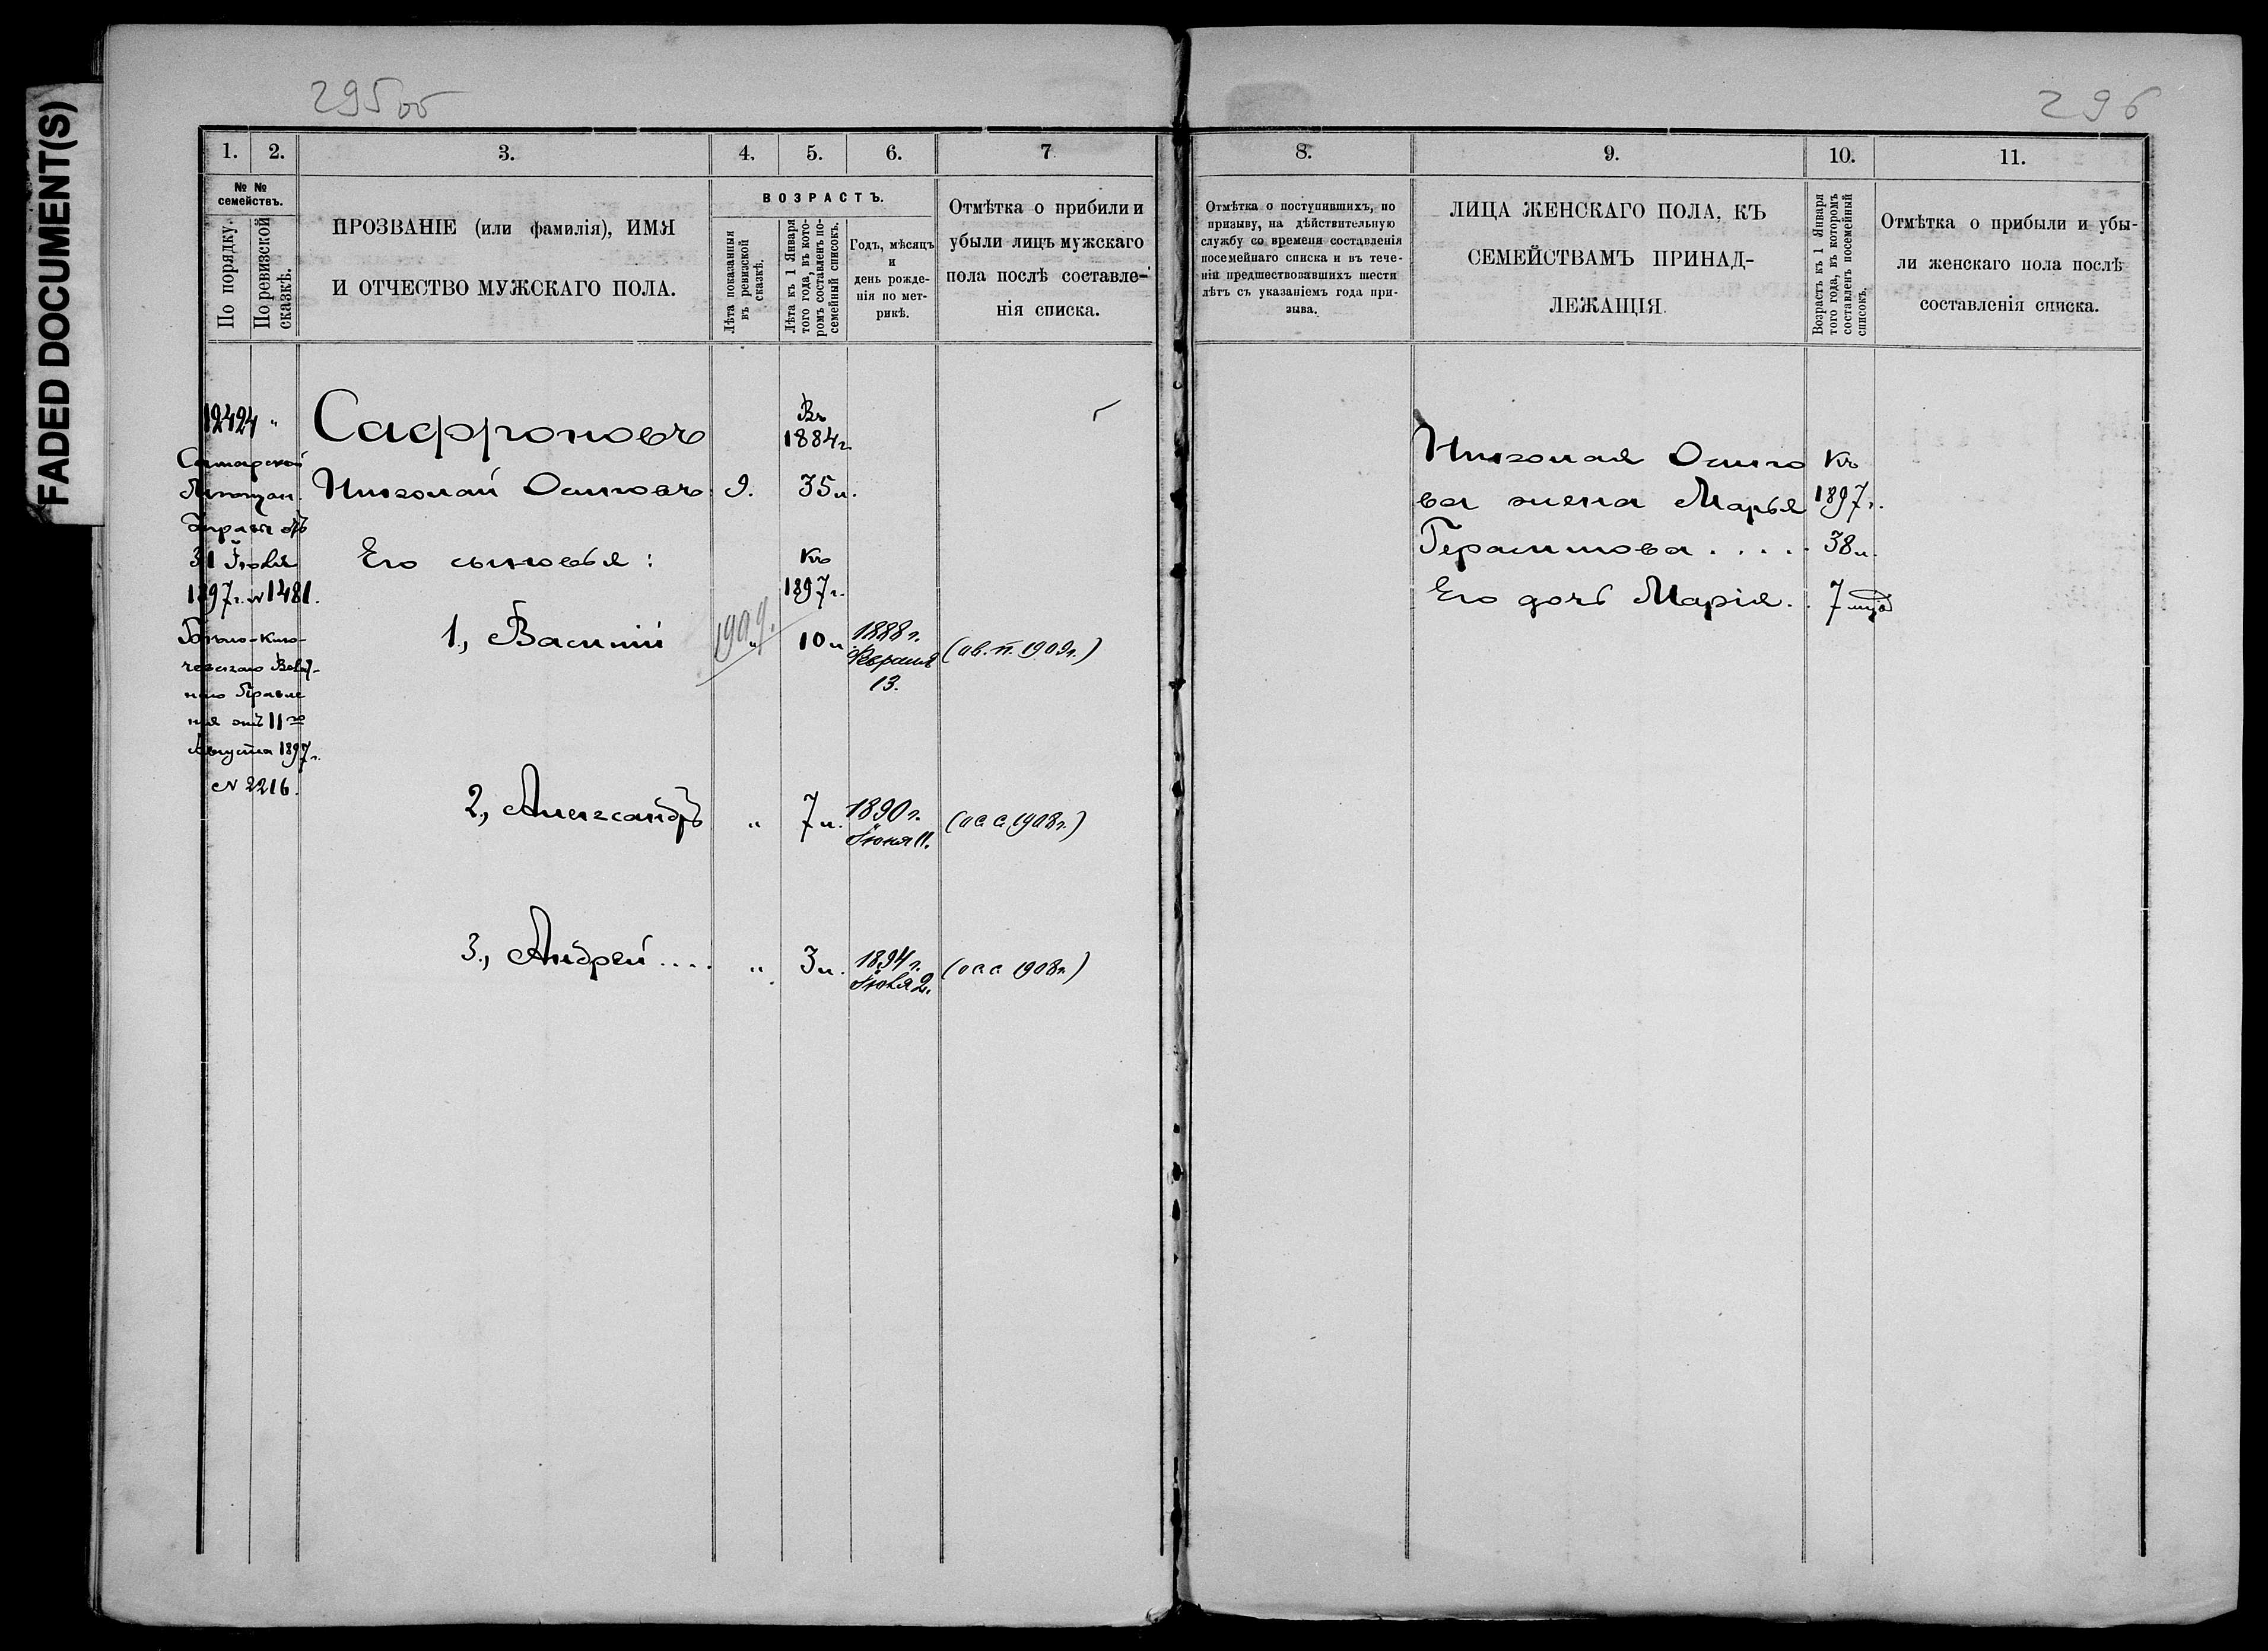 FADED DOCUMENT(S)
295 об
1.
2.
3.
4.
5.
6.
7
№ №
семействъ.
По порядку.
По ревизской
сказкѣ.
ПРОЗВАНІЕ (или фамилія), ИМЯ
И ОТЧЕСТВО МУЖСКАГО ПОЛА.
ВОЗРАСТЪ.
Лѣта показанныя
въ ревизской
сказкѣ.
Лѣта къ 1 Января
того года, въ кото-
ромъ составленъ по-
семейный списокъ.
Годъ, мѣсяцъ
и
день рожде-
нія по мет-
рикѣ.
Отмѣтка о прибыли и
убыли лицъ мужскаго
пола послѣ составле-
нія списка.
12424 "
Самарской
Мѣщан.
Управы отъ
31 Іюля
1897 г. № 1481.
ческаго Волост-
наго Правле
нія отъ 11го
Августа 1897 г.
№ 2216.
Сафроновъ
Въ
1884 г.
Николай Осиповъ 9. 35 л.
Его сыновья:
Къ
1897 г.
1., Василій
1909.
"
10 л.
1888 г.
Февраля
13.
(ав. п. 1909 г.)
2., Александръ " 7 л.
1890 г.
Іюня 11.
1908 г.)
3., Андрей.... " 3 л.
1894 г.
Іюля 2.
1908 г.)
296
8.
9.
10.
11.
Отмѣтка о поступившихъ, по
призыву, на дѣйствительную
службу со времени составленія
посемейнаго списка и въ тече-
ніи предшествовавшихъ шести
лѣтъ съ указаніемъ года при-
зыва.
ЛИЦА ЖЕНСКАГО ПОЛА, КЪ
СЕМЕЙСТВАМЪ ПРИНАД-
ЛЕЖАЩІЯ
Возрастъ къ 1 Января
того года, въ которомъ
составленъ посемейный
списокъ.
Отмѣтка о прибыли и убы-
ли женскаго пола послѣ
составленія списка.
Николая Осипо Къ
ва жена Марья 1897 г.
Герасимова..... 38 л.
Его дочь Марія.. 7